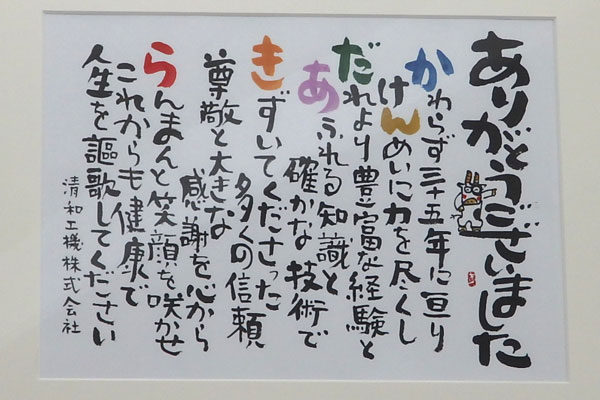 ありがとうございました
かわらず三十五年に亘り
けんめいに力を尽くし
だれより豊富な経験と
あふれる知識と
確かな技術で
きずいてくださった
多くの信頼
尊敬と大きな
感謝を心から
らんまんと笑顔を咲かせ
これからも健康で
人生を謳歌してください
清和工機株式会社